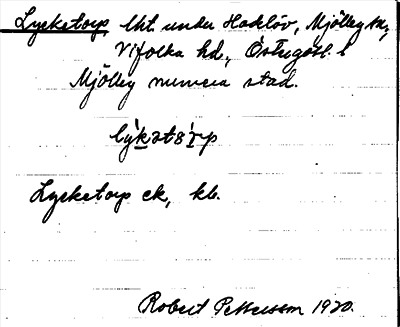 Lycketorp lht under Hacklöv, Mjölby sn,
Vifolka hd, Östergötl. l
Mjölby numera stad.
Lycketorp ek, kb.
Robert Pettersson 1920.